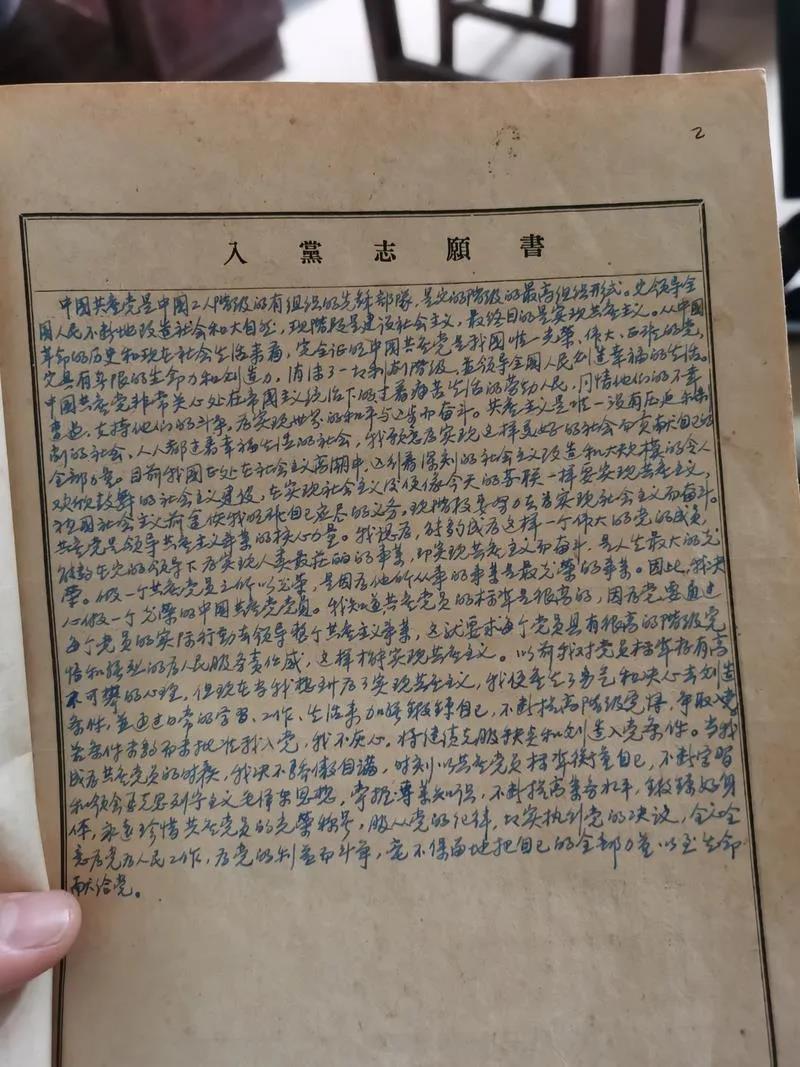 2
入黨志願書
中国共产党是中国工人阶级的有组织的先锋部隊，是它的阶级的最高组织形式。它领导全
国人民不断地改造社会和大自然，现階段是建设社会主义，最终目的是实现共产主义。从中国
革命的历史和现在社会生活来看，完全证明中国共产党是我国唯一光荣、伟大、正确的党，
它具有无限的生命力和创造力，消滅了一切剥削階级，並领导全国人民创造幸福的生活。
中国共产党非常关心处在帝国主义统治下的过着痛苦生活的劳动人民，同情他们的不幸
遭遇，支持他们的斗争，為实现世界的和平与进步而奋斗。共产主义是唯一没有压迫和剥
削的社会，人人都过着幸福生活的社会，我願意為实现这样美好的社会而贡献自己的
全部力量。目前我國正处在社会主义高潮中，这引着深刻的社会主义改造和大规模的令人
欢欣鼓舞的社会主义建设，在实现社会主义后便像今天的苏联一样要实现共产主义，
祖國社会主义前途使我明确自己应尽的义务。现階段要努力去為实现社会主义而奋斗。
共产党是领导共产主义事業的核心力量。我认為，能夠成為这样一个伟大的党的成員，
能夠在党的领导下為实现人类最壮丽的事業，即实现共产主义而奋斗，是人生最大的光
荣。做一个共产党员之所以光荣，是因為他所从事的事業是最光荣的事業。因此，我决
心做一个光荣的中国共产党党员。我知道共产党员的标准是很高的，因為党要通过
每个党员的实际行动去领导整个共产主义事業，这就要求每个党员具有很高的階级觉
悟和强烈的為人民服务责任感，这样才能实现共产主义。以前我对党员标準存有高
不可攀的心理，但现在当我想到為了实现共产主义，我便产生了勇气和决心去创造
条件，並通过日常的学习、工作、生活来加强鍛鍊自己，不断提高階级觉悟，争取入党。
若条件不夠而未批准我入党，我不灰心，将继续克服缺点和创造入党条件。当我
成為共产党员的时候，我决不骄傲自满，时刻以共产党员标準衡量自己，不断学习
和领会馬克思列宁主义毛泽东思想，掌握專業知识，不断提高業务水平，鍛鍊好身
体，永远珍惜共产党员的光荣称号，服从党的纪律，切实执行党的决议，全心全
意為党為人民工作，為党的利益而斗争，毫不保留地把自己的全部力量以至生命
献给党。